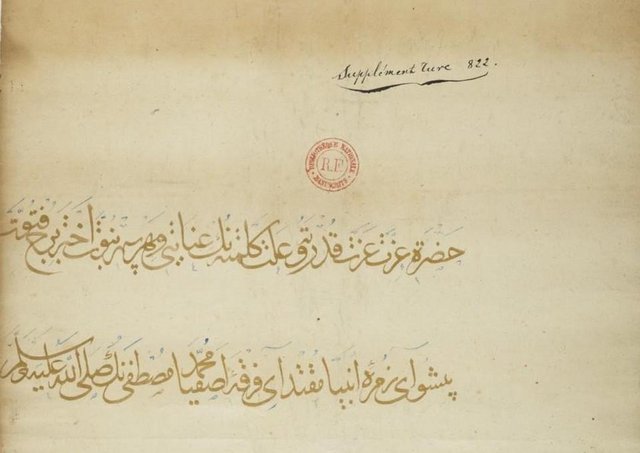 Supplément Turc 822.
BIBLIOTHÈQUE NATIONALE
R.F.
MANUSCRITS
حضرة عزت عزت قدرته وعلت كلمته نك عنايتى ومهر سپهر نبوت اختر برج فتوت
پیشوای زمرهٔ انبیا مقتدای فرقهٔ اصفیا محمد مصطفی نك صلى الله عليه وسلم